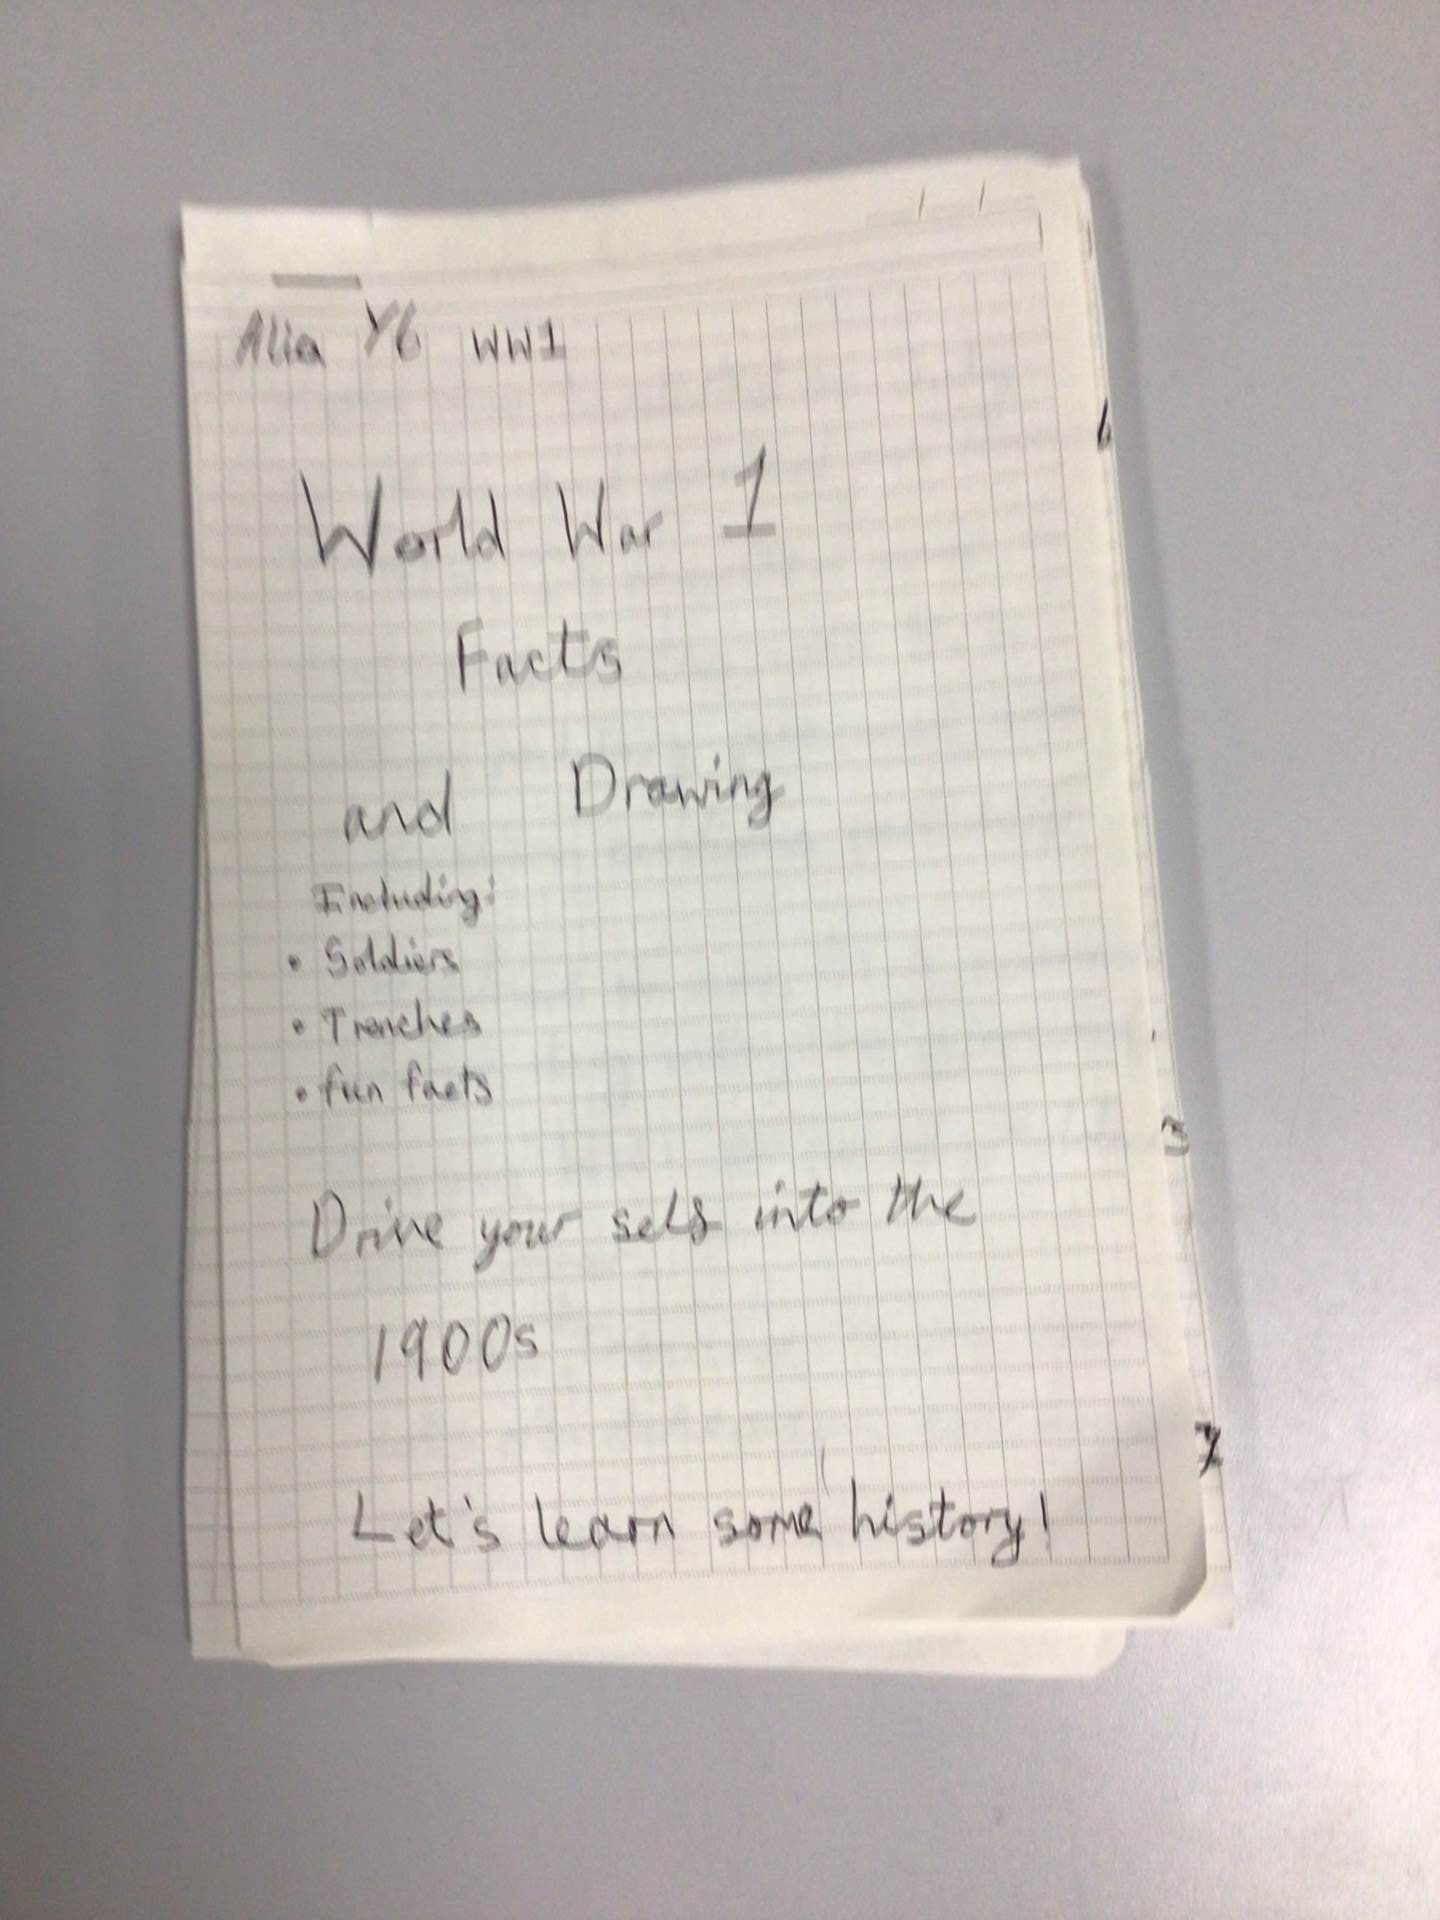 Alia Y6 WW1
World War 1
Facts
and Drawing
Including:
• Soldiers
• Trenches
• fun facts
Drive your self into the
1900s
Let's learn some history!
6
3
7